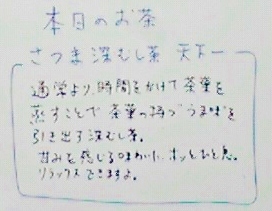 本日のお茶
さつま深むし茶 天下一
通常より、時間をかけて茶葉を
蒸すことで茶葉の持つ"うま味"を
引き出す深むし茶。
甘みを感じる味わいに、ホッとひと息。
リラックスできますよ。